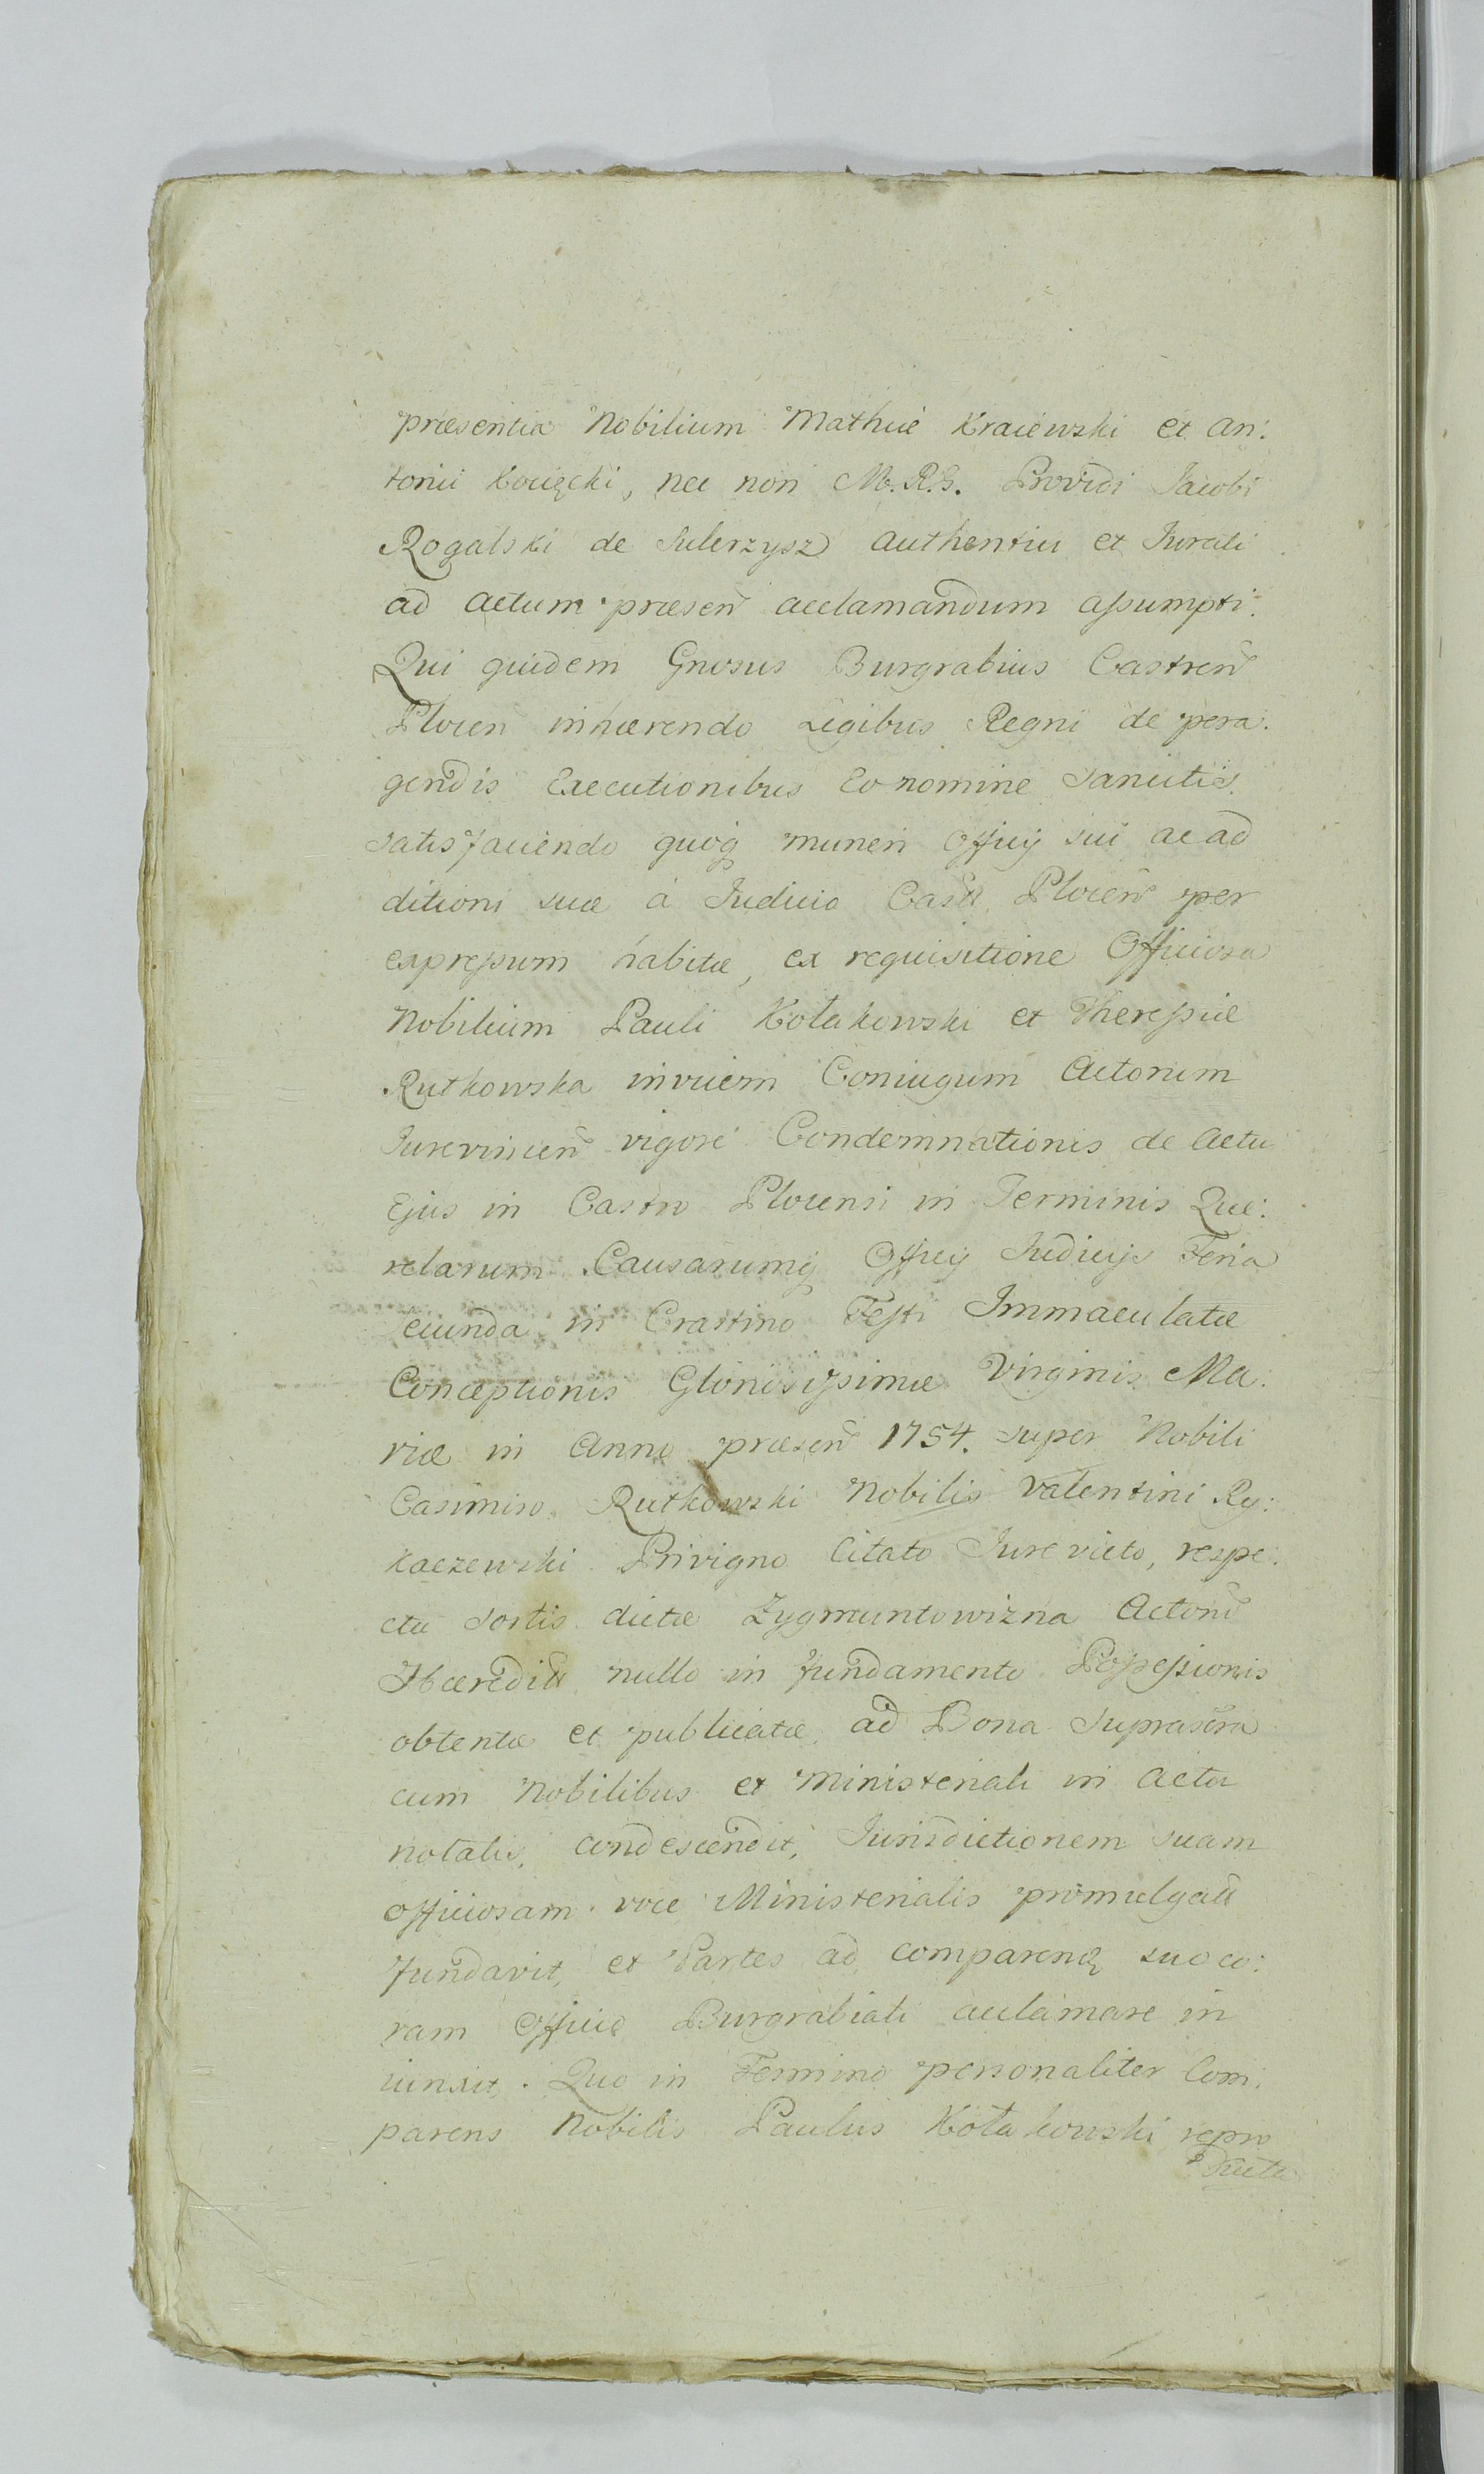 præsentia Nobilium Mathiæ Kraiewski et An:
tonii Kocięcki, nec non M. R. G. Providi Jacobi
Rogalski de Sulerzysz Authentici et Jurati
ad Actum præsen̄ acclamandum assumpti.
Qui quidem Gnosus Burgrabius Castren̄
Plocen̄ inhærendo Legibus Regni de pera:
gendis Executionibus Eo nomine Sancitis,
satisfaciendo quoq muneri Officij sui ac ad
ditioni suæ á Judicio Castr̄ Plocen̄ per
expressum habitæ, ex requisitione Officiosa
Nobilium Pauli Kołakowski et Theressiæ
Rutkowska invicem Coniugum Actorum
Jurevincen̄ vigore Condemnationis de Actu
Ejus in Castro Plocensi in Terminis Que:
relarum Causarumq Officij Judicijs Feria
Secunda in Crastino Festi Immaculatæ
Conceptionis Gloriosissimæ Virginis Ma:
riæ in Anno præsen̄ 1754. super Nobili
Casimiro Rutkowski Nobilis Valentini Ry:
kaczewski Privigno Citato Jurevicto, respe:
ctu Sortis dictæ Zygmuntowizna Actorū
Hæredit̄ nullo in fundamento Possessionis
obtentæ et publicatæ, ad Bona Suprascra
cum Nobilibus et Ministeriali in Actu
notatis, condescendit, Jurisdictionem suam
officiosam voce Ministerialis promulgatā
fundavit, et Partes ad comparenđ suo co:
ram Officio Burgrabiali acclamare in
iunxit. Quo in Termino personaliter Com:
parens Nobilis Paulus Kołakowski repro
ducta